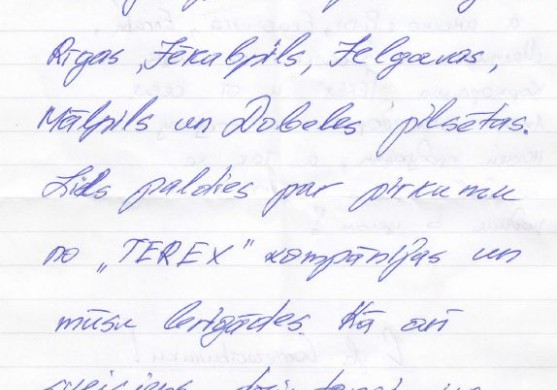 Rīgas, Jēkabpils, Jelgavas,
Mālpils un Dobeles pilsētas.
Liels paldies par pirkumu
no „TEREX” kompānijas un
mūsu brigādes. Kā arī